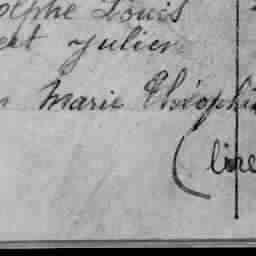 olphe Louis
et Julien
Marie Théophi
(lire